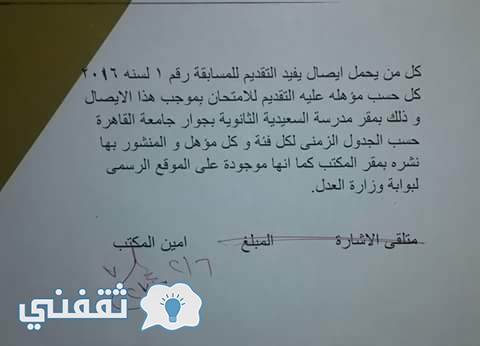 كل من يحمل ايصال يفيد التقديم للمسابقة رقم ١ لسنه ٢٠١٦
كل حسب مؤهله عليه التقديم للامتحان بموجب هذا الايصال
و ذلك بمقر مدرسة السعيدية الثانوية بجوار جامعة القاهرة
حسب الجدول الزمنى لكل فئة و كل مؤهل و المنشور بها
نشره بمقر المكتب كما انها موجودة على الموقع الرسمى
لبوابة وزارة العدل.
متلقى الاشارة المبلغ امين المكتب
ثقفني